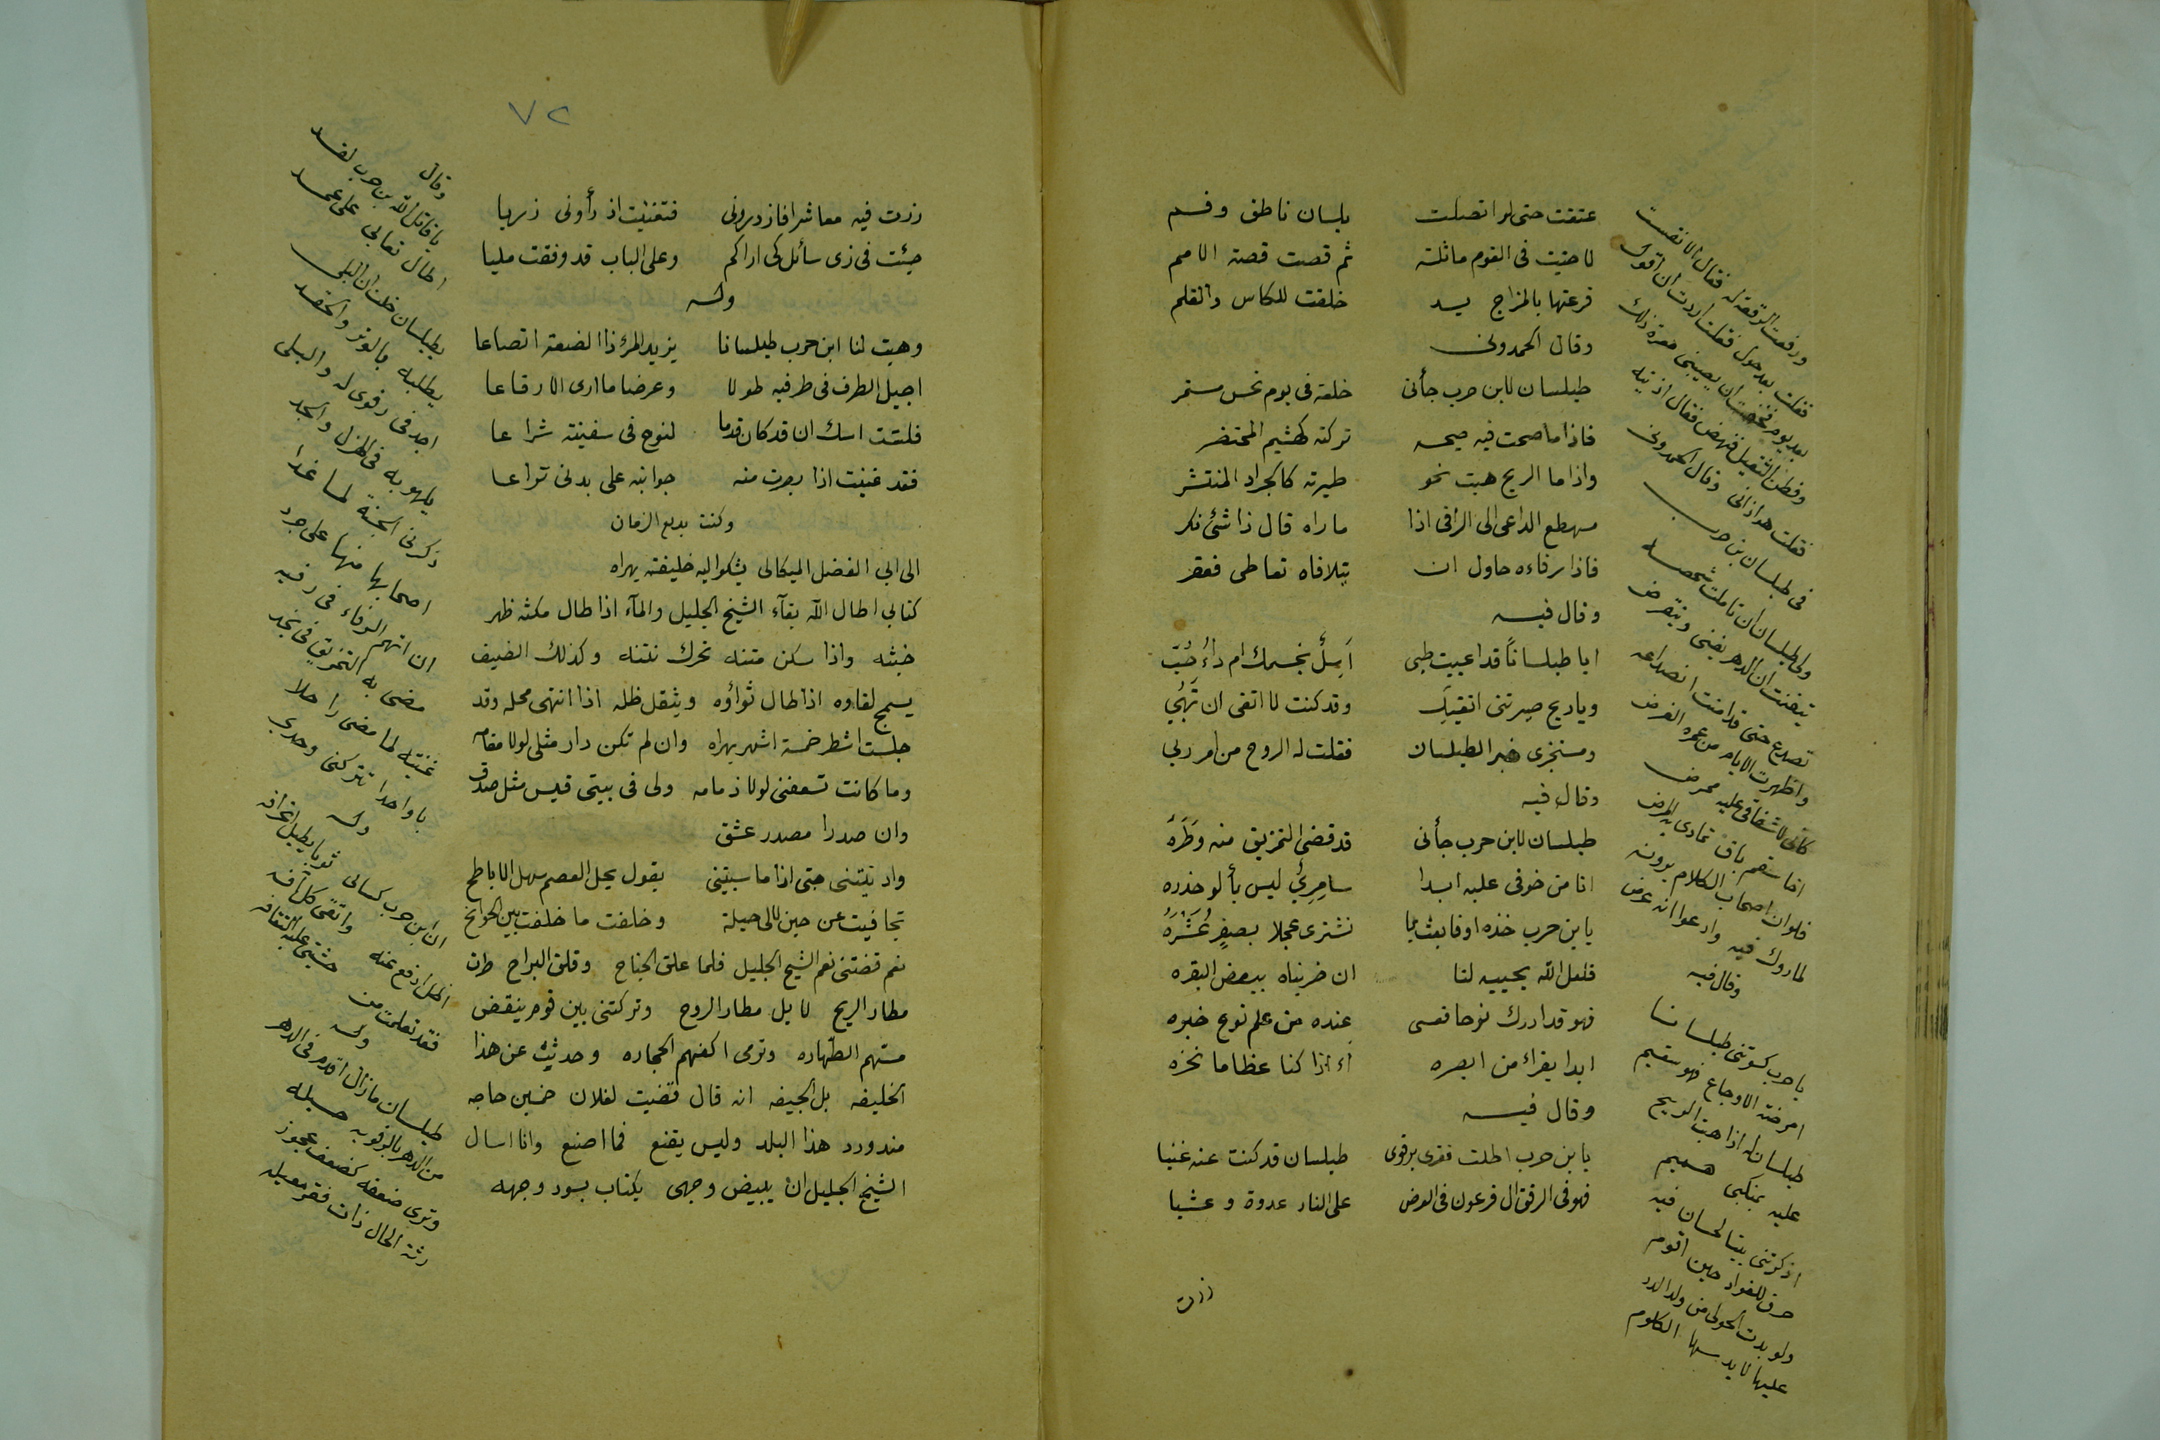 عتقت حتى لو اتصلت بلسان ناطق وفم
لاحتبت فى القوم ماثلة ثم قصت قصة الامم
قرعتها بالمزاج يد خلقت للكاس والقلم
وقال الحمدونى
طيلسان لابن حرب جأنى خلعة فى يوم نحس مستمر
فاذا ما صحت فيه صيحه تركته كهشيم المحتضر
واذا ما الريح هبت نحو طيرته كالجراد المنتشر
مهطع الداعى الى الرافى اذا ما راه قال ذا شئ نكر
فاذا رفاءه حاول ان يتلافاه تعاطى فعقر
وقال فيه
ايا طيلسانًا قد اعييت طبى اَسِلٌّ بجسمك ام داءُ حُبّ
وياريح صيرتنى اتقيكِ وقد كنت لا اتقى ان تَهُبّي
ومستخبرى خبر الطيلسان فقلت له الروح من امر ربى
وقال فيه
طيلسان لابن حرب جأنى قد قضى التمزيق منه وَطَرَهْ
انا من خوفى عليه ابدا سامِرِيٌّ ليس يألو حذره
يابن حرب خذه او فابعث بما نشترى عجلا بصفرٍ عُشَرَهْ
فلعل الله يحييه لنا ان ضربناه ببعض البقره
فهو قد ادرك نوحا فعسى عنده من علم نوح خبره
ابدا يقرا من ابصره أءذا كنا عظاما نخره
وقال فيه
يابن حرب اطلت فقرى برفوى طيلسان قد كنت عنه غنيا
فهو فى الرفق ال فرعون فى العرض على النار عدوة وعشيا
زرت
ورفعت الرقعة له فقال الا نقيت
فقلت بعد حول فقلت اردت ان اقول
بعد يوم فخفت ان يصيبنى معرة ذلك
وفطن الثقيل فنهض فقال اذيته
فقلت هو اذانى وقال الحمدونى
فى طيلسان بن حرب
ولى طيلسان ان تاملت شخصه
تيقنت ان الدهر يفنى وينقرض
تصدع حتى قد امنت انصداعه
واظهرت الايام من عمره الغرض
كانى لاشفاقى عليه ممرض
اخا سقم باق تمادى به المرض
فلو ان اصحاب الكلام يرونه
لماروك فيه وادعوا انه عرض
وقال فيه
يا حرب كسوتنى طيلسانا
امرضته الاوجاع فهو سقيم
طيلسان له اذا هبت الريح
عليه بمنكبى هميم
اذكرتنى بيتا لحسان فيه
حرق للفواد حين اقوم
ولو يدب الحولى من ولد الدر
عليها لاندبتها الكلوم
٧٢
زرت فيه معاشرا فازدرونى فتغنيت اذ رأونى زريا
جئت فى زى سائل كى اراكم وعلى الباب قد وقفت مليا
وله
وهبت لنا ابن حرب طيلسانا يزيد المرء ذا الضعة اتضاعا
اجيل الطرف فى طرفيه طولا وعرضا ما ارى الا رقاعا
فلست اشك ان قد كان قدما لنوح فى سفينته شراعا
فقد غنيت اذا بصرت منه جوانبه على بدنى تراعا
وكتب بديع الزمان
الى ابى الفضل الميكالى يشكو اليه خليفته بهراه
كتابى اطال الله بقآء الشيخ الجليل والمآء اذا طال مكثه ظهر
خبثه واذا سكن متنه تحرك نتنه وكذلك الضيف
يسمج لقاوه اذا طال ثوآؤه ويثقل ظله اذا انتهى محله وقد
حلبت اشطر خمسة اشهر بهراه وان لم تكن دار مثلى لولا مقامه
وما كانت تسعفنى لولا ذمامه ولى فى بيتى قيس مثل صدق
وان صدرا مصدر عشق
وادنيتنى حتى اذا ما سبيتنى بقول يحل العصم سهل الاباطح
تجافيت عن حين لالى حيلة وخلفت ما خلفت بين الجوانح
نعم قنصتنى نعم الشيخ الجليل فلما علق الجناح وقلق البراح طرت
مطار الريح لا بل مطار الروح وتركتنى بين قوم ينقض
مسهم الطهاره وتوهى اكفهم الحجاره وحدثت عن هذا
الخليفه بل الجيفه انه قال قضيت لفلان خمسين حاجه
منذ ورد هذا البلد وليس يقنع فما اصنع وانا اسال
الشيخ الجليل ان يبيض وجهى بكتاب يسود وجهه
وقال
يا قاتل الله بن حرب لقد
اطال تعابى على عمد
بطيلسان خلت ان البلى
يطلبه بالوتر والحقد
اجد فى رفوى له والبلى
يلهو به فى الهزل والجد
ذكرنى الجنة لما غدا
اصحابها منها على حرد
ان اتهم الرفاء فى رفيه
مضى به التمزيق فى نجد
غنيته لما مضى راحلا
يا واحدا تتركنى وحدى
وله
ان ابن حرب كسانى ثوبا يطيل انحرافه
اظل ادفع عنه واتقى كل آفه
فقد تعلمت من خشيتى عليه الثقافه
وله
طيلسان ما زال اقدم فى الدهر
من الدهر ما لرفويه حيله
وترى ضعفه كضعف عجوز
رثة الحال ذات فقر معيله